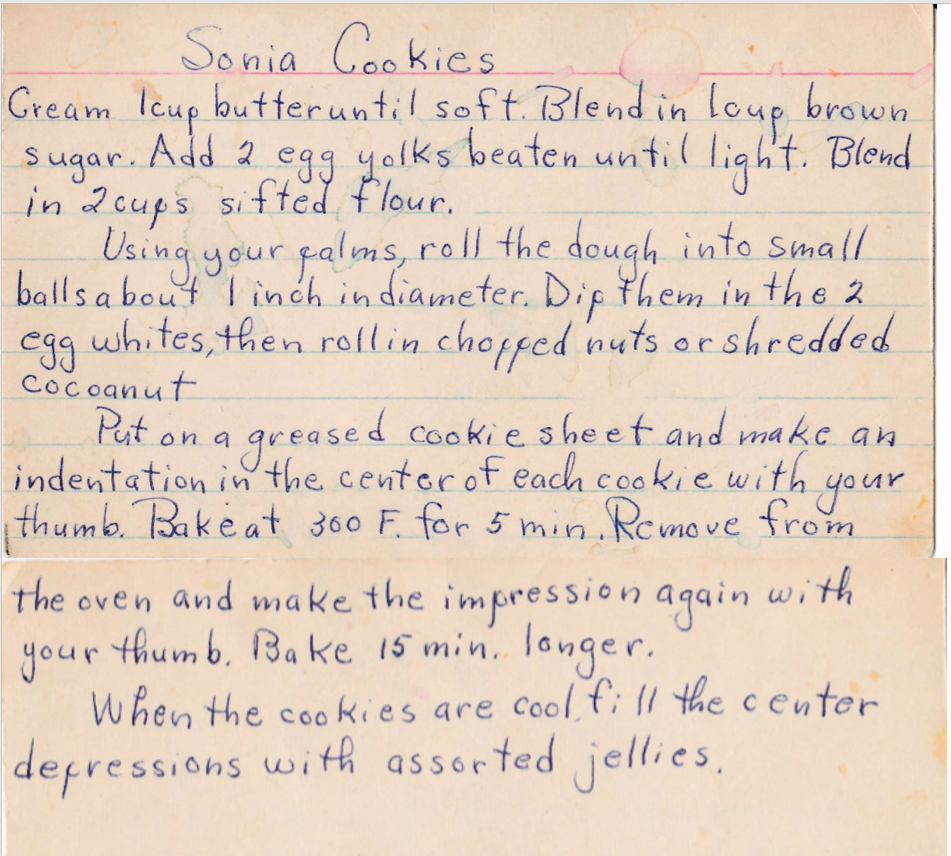 Sonia Cookies
Cream 1cup butter until soft. Blend in 1cup brown
sugar. Add 2 egg yolks beaten until light. Blend
in 2 cups sifted flour.
Using your palms, roll the dough into small
balls about 1 inch in diameter. Dip them in the 2
egg whites, then roll in chopped nuts or shredded
cocoanut
Put on a greased cookie sheet and make an
indentation in the center of each cookie with your
thumb. Bake at 300 F. for 5 min. Remove from
the oven and make the impression again with
your thumb. Bake 15 min. longer.
When the cookies are cool, fill the center
depressions with assorted jellies.